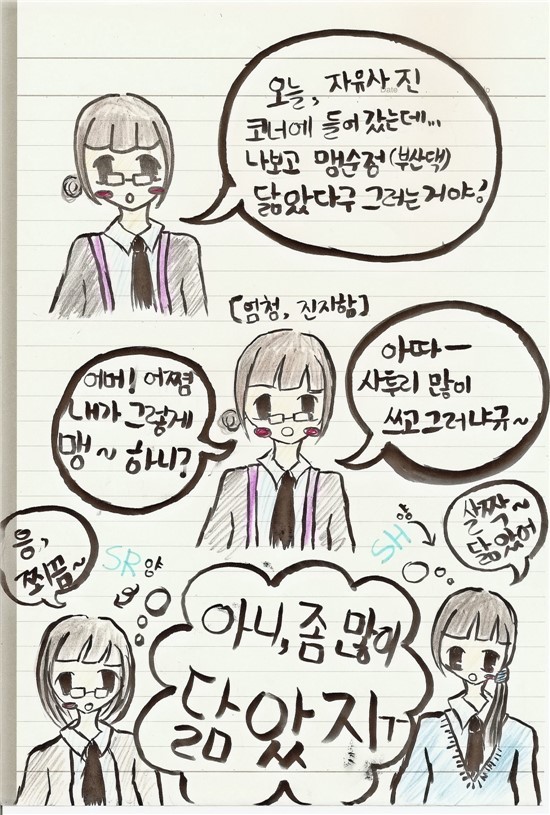 오늘, 자유사진
코너에 들어갔는데...
나보고 맹순정(부산댁)
닮았다구 그러는거야!
[엄청, 진지함]
어메! 어쩜
내가 그렇게
맹~ 하니?
아따ー
사투리 많이
쓰고그러냐규~
응,
쬐끔~
SR양
SH양
살짝~
닮았어
아니, 좀 많이
닮았지ㅋ